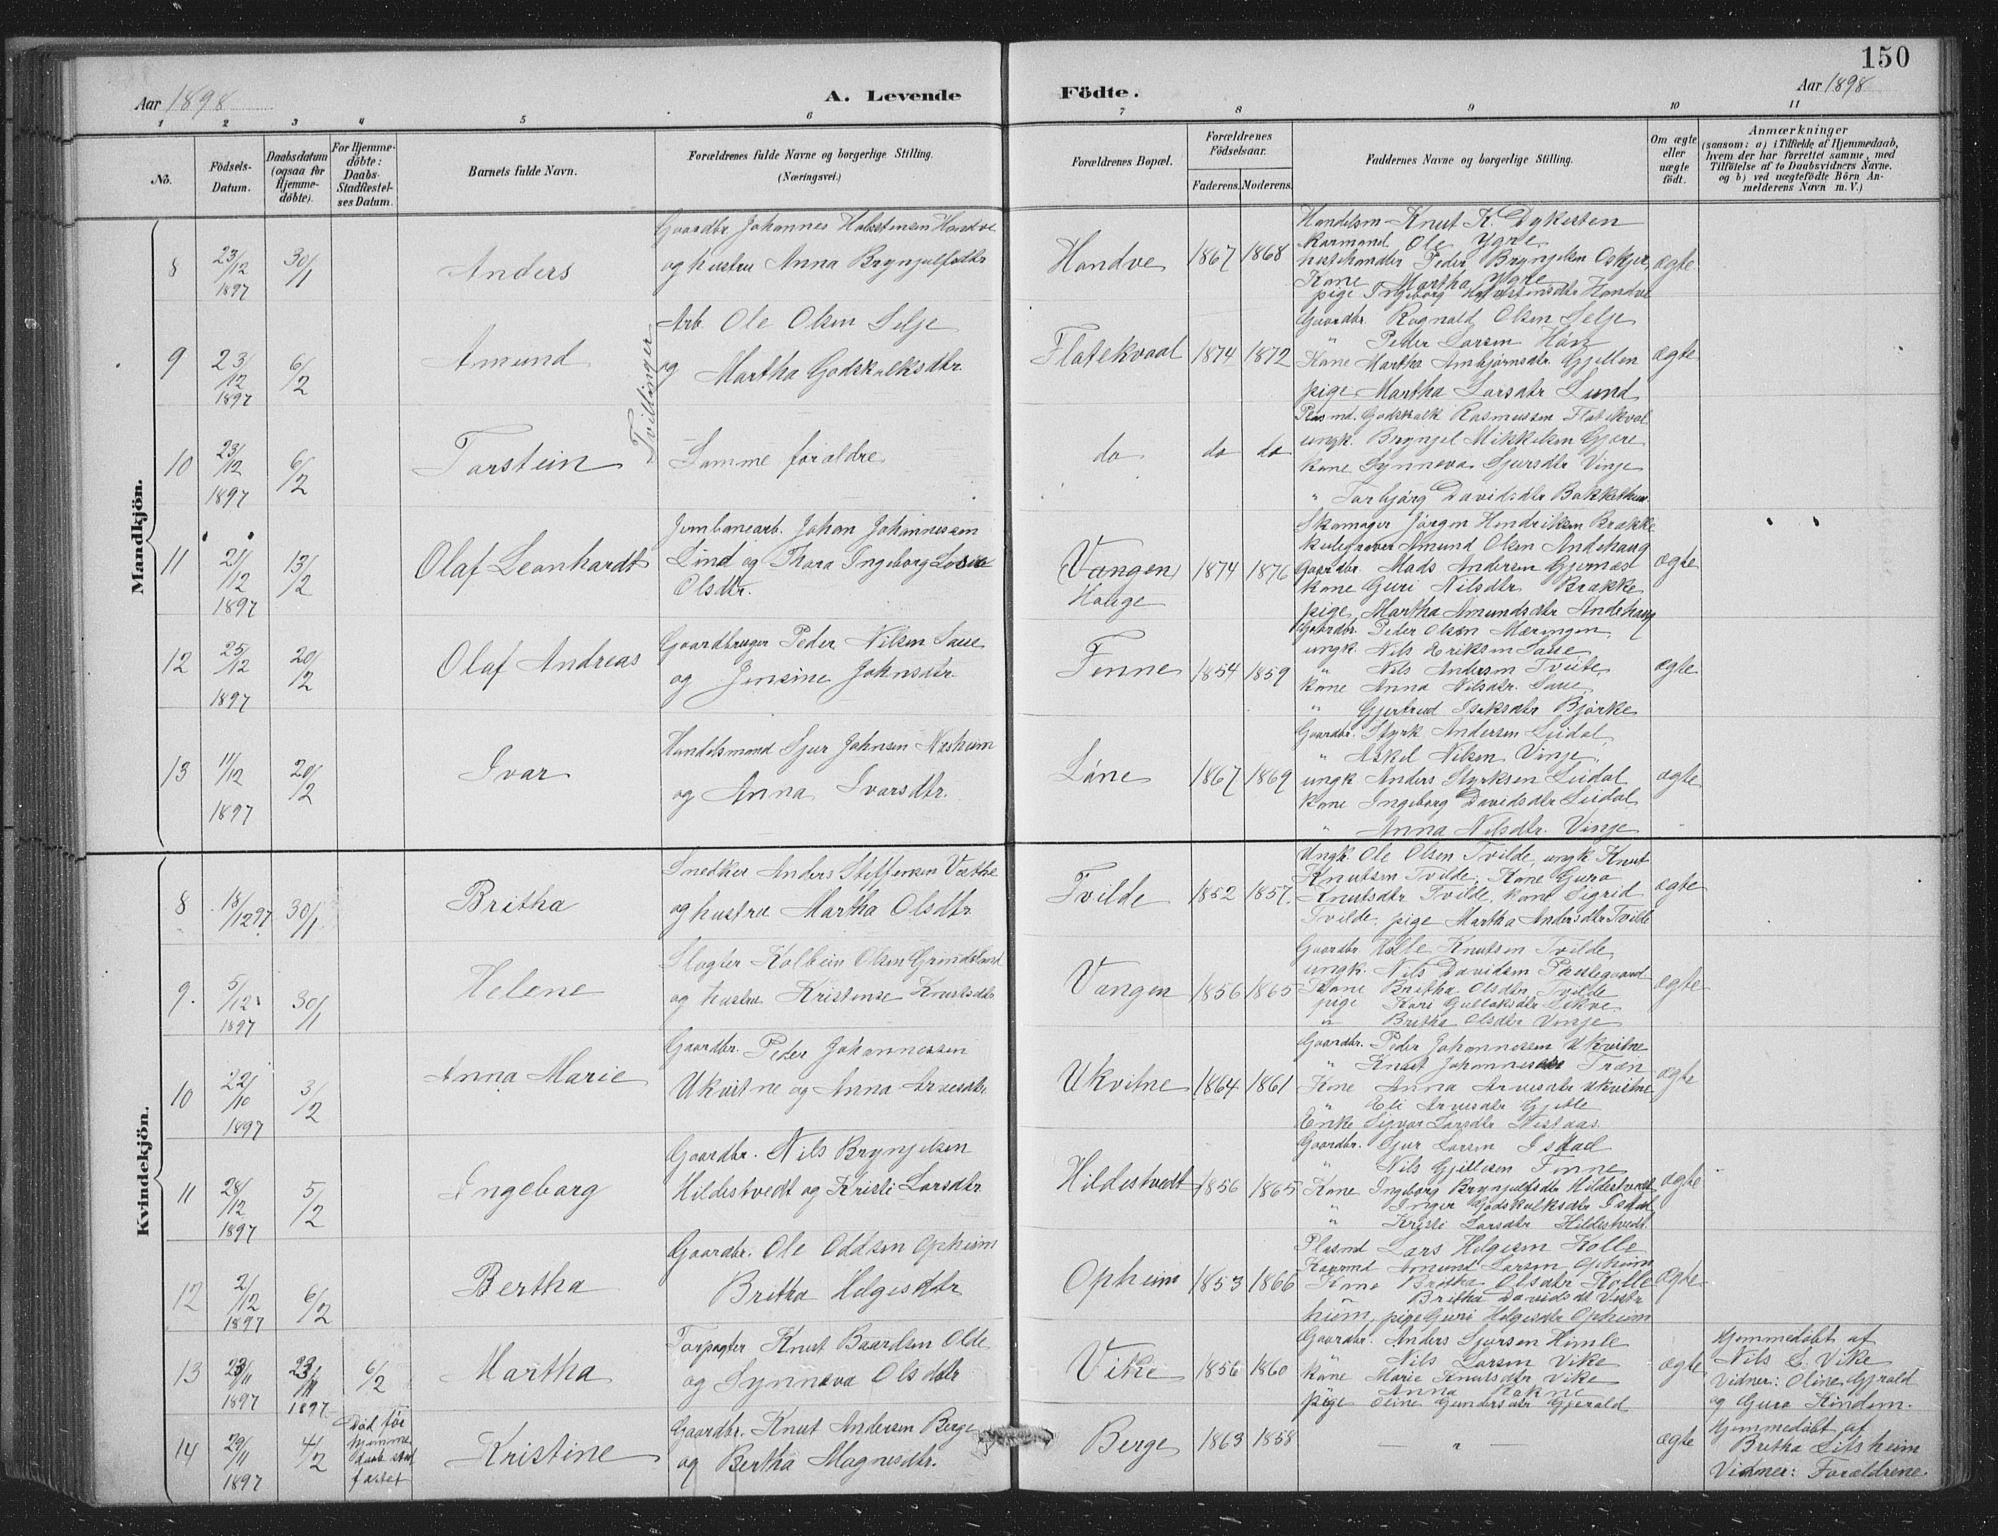 150
Aar 1898
A. Levende Födte.
Aar 1898
1 2 3 4 5 6 7 8 9 10 11
No.
Födsels-Datum.
Daabsdatum (ogsaa for Hjemme-döbte).
For Hjemme-döbte: Daabs-Stadfæstel-ses Datum.
Barnets fulde Navn.
Forældrenes fulde Navne og borgerlige Stilling.
(Næringsvei.)
Forældrenes Bopæl.
Forældrenes Födselsaar.
Faderens. Moderens.
Faddernes Navne og borgerlige Stilling.
Om ægte eller uægte födt.
Anmærkninger
(saasom: a) i Tilfælde af Hjemmedaab,
hvem der har forrettet samme, med
Tilföielse af to Daabsvidners Navne,
og b) ved uægtefödte Börn An-
melderens Navn m. V.)
Mandkjön.
8 23/12 1897 30/1
Anders
Gaardbr Johannes Halstensen Handve
og hustru Anna Brynjulfsdtr
Handve 1867 1868
Handelsm Knut K. Dykesten
Karmand Ole Ygre
hestehandler Peder Brynjelsen
Kone Martha Ygre
pige Ingeborg Halstensdtr Handve
ægte
9 23/12 1897 6/2
Amund
Tvillinger
Arb. Ole Olsen Selje
og Martha Godskalksdtr.
Flatekvaal 1874 1872
Gaardbr. Ragnald Olsen Selje
" Peder Larsen
Kone Martha Anbjørnsdtr Gjellen
pige Martha Larsdtr Lund
ægte
10 23/12 1897 6/2
Torstein
Samme forældre
do do do
Plasmd. Godskalk Rasmussen Flatekval
ungk. Brynjel Mikkelsen Gjøre
kone Synneva Sjursdtr Vinje
" Torbjørg Davidsdtr
11 21/12 1897 13/2
Olaf Leonhardt
Jernbanearb. Johan Johannessen
Lind og Thora Ingeborg
Olsdtr.
Vangen
Hauge
1874 1876
Skomager Jørgen Hendriksen Brække
Amund Olsen
Gaardbr. Mads Andersen Gjernæs
kone Guri Nilsdtr Brække
pige Martha Amundsdtr
ægte
12 25/12 1897 20/2
Olaf Andreas
Gaardbruger Peder Nilsen Saue
og Jensine Johnsdtr.
Finne 1854 1859
Gaardbr. Peder Olsen Mæringen
ungk Nils Eriksen Saue
" Nils Andersen Tveite
kone Anna Nilsdtr. Saue
" Gjertrud Isaksdtr Bjørke
ægte
13 11/12 1897 20/2
Ivar
Handelsmand Sjur Johnsen Næsheim
og Anna Ivarsdtr.
Løne 1867 1869
Gaardbr. Styrk Andersen Leidal
" Askel Nilsen Vinje
ungk Anders Styrksen Leidal
kone Ingeborg Davidsdtr Leidal
" Anna Nilsdtr. Vinje
ægte
Kvindekjön.
8 18/12 97 30/1
Britha
Snedker Anders Steffensen Væthe
og hustru Martha Olsdtr
Tvilde 1852 1857
Ungk Ole Olsen Tvilde, ungk Knut
Knutsen Tvilde, Kone Guro
Knutsdtr Tvilde, kone Sigrid
Tvilde, pige Martha Andersdtr Tvilde
ægte
9 5/12 1897 30/1
Helene
Slagter Kolbein Olsen Grindeland
og hustru Kristense Knutsdtr
Vangen 1856 1865
Gaardbr Helle Knutsen Tvilde
ungk. Nils Davidsen Prestegaard
Kone Britha Olsdtr Tvilde
pige Kari Gullaksdtr Lekve
" Britha Olsdtr Vinje
ægte
10 22/10 1897 3/2
Anna Marie
Gaardbr. Peder Johannessen
Ukvitne og Anna Arvesdtr.
Ukvitne 1864 1861
Gaardbr. Peder Johannessen Ukvitne
" Knut Johannessen Træn
Kone Anna Arvesdtr Ukvitne
" Eli Arvesdtr Gjelle
Enke Sigvor Larsdtr Nestaas
ægte
11 28/12 1897 5/2
Ingeborg
Gaardbr. Nils Brynjelsen
Hildestvedt og Kristi Larsdtr
Hildestvedt 1856 1865
Gaardbr. Sjur Larsen Istad
" Nils Gjellesen Finne
Kone Ingeborg Brynjulfsdtr Hildestvedt
" Inger Godskalksdtr Istad
" Kristi Larsdtr Hildestvedt
ægte
12 2/12 1897 6/2
Bertha
Gaardbr. Ole Oddsen Opheim
Britha Helgesdtr
Opheim 1853 1866
Plasmd Lars Helgesen Kolle
Kaarmd Amund Larsen Opheim
Kone Britha Olsdtr Kolle
" Britha Davidsdt Vestr
heim, pige Guri Helgesdtr Opheim
ægte
13 23/11 1897 23/11 1897 6/2
Martha
Forpagter Knut Baardsen Olde
og Synneva Olsdtr
Vike 1856 1860
Gaardbr. Anders Sjursen Himle
" Nils Larsen Vike
kone Marie Knutsdtr Vike
" Anna Rokne
pige Oline Gundersdtr Gjerald
ægte
Hjemmedøbt af
Nils L. Vike
Vidner: Oline Gjerald
og Guro Kindem.
14 29/11 1897 4/2
Død før
hjemme
daab stad
fæstet
Kristine
Gaardbr. Knut Andersen Berge
og Bertha Magnesdtr.
Berge 1863 1858
— " —
ægte
Hjemmedøbt af
Britha Litsheim
Vidner: Forældrene